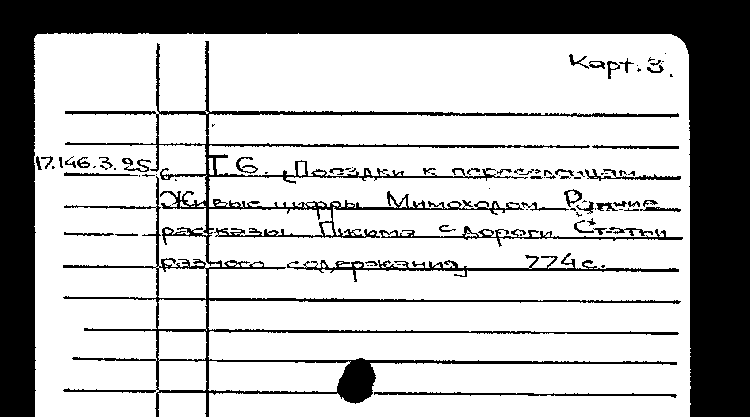 Карт. 3.
17.146.3.95-6. Т. 6. „Поездки к переселенцам.
Живые цифры. Мимоходом. Ранние
рассказы. Письма с дороги. Статьи
разного содержания„ 774 с.